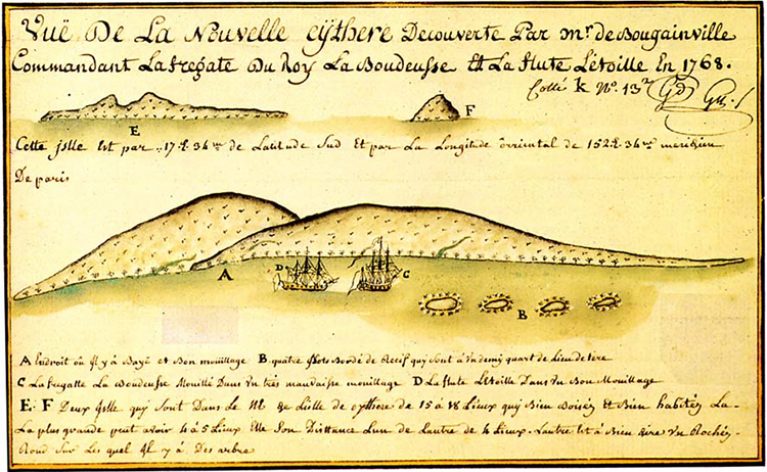 Vuë De La Nouvelle cÿthere Decouverte Par mr. de Bougainville
Commandant La fregate Du Roy La Boudeusse Et La flute Létoille En 1768.
Cotté k No. 13
E
F
Cette jslle Est par 17 d. 36 m de Latitude Sud Et par La Longitude orriental de 152 d. 36 m meridien
De paris
A
D
C
B
A Endroit où jl y à Bayë et Bon mouillage B. quatre jlots Bordé de Recif quy sont à un demy quart de Lieu de tere
C La fregatte La Boudeusse Mouillé Dans un très mauvaisse mouillage D La flute Létoille Dans un Bon Mouillage
E. F Deux jslle quy sont Dans Le de Lille de cythere de 15 à 18 Lieux quy Bien Boisés Et Bien habités La-
La plus grande peut avoir 4 à 5 Lieux Elle son Disttance Lun de Lautre de 4 Lieux. Lautre Est à Bien dire un Rocher
Rond sur Les quel jl y à Des arbre